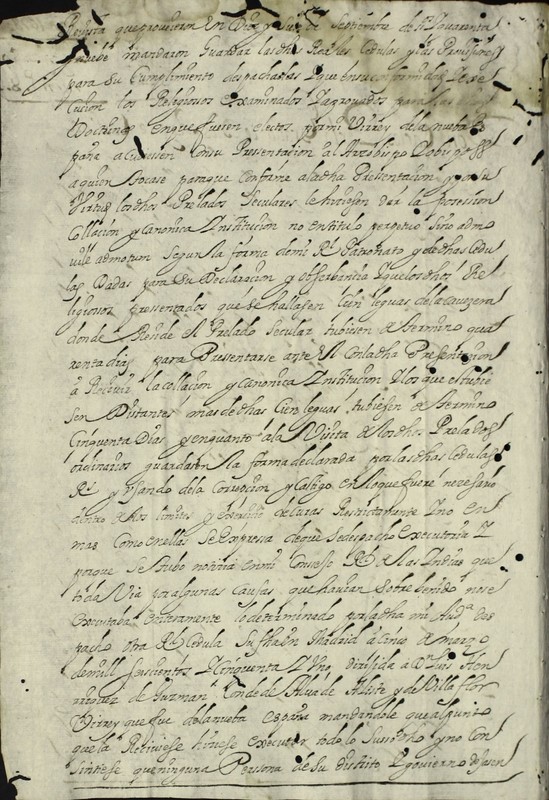 Revista que proveieron En Diez y siete de septiembre de Seis quarenta
y nuebe mandaron Guardar las dhas Reales Cedulas y las Permisiones
para su Cumplimiento despachadas y que en su conformidad
los Religiosos examinados y aprovados para las
Doctrinas en que fuesen electos por mi Virrey de la nueba Es
paña acudiesen con su Presentacion al Arzobispo Obispo
a quien tocase para que conforme a la dha Presentacion y en su
Virtud los dhos Prelados Seculares le hiziesen dar la posesion
Collacion y canonica Institucion no en titulo perpetuo sino ad mo
vile ad nutum segun la forma de mi Rl Patronato y de dhas cedu
las Dadas para su Declaracion y observancia y que los dhos Re
ligiosos presentados que se hallasen cien leguas de la cavezera
donde Reside el Prelado secular tubiesen de termino qua
renta dias para Presentarse ante el Con la dha Presentacion
a Recevir la collacion y canonica Institucion y los que estubie
sen Distantes mas de dhas cien leguas tubiesen de termino
cinquenta Dias y en quanto a la Visita de los dhos Prelados
ordinarios guardasen la forma declarada por las dhas cedulas
Rs y usando de la Correpcion y castigo en lo que fuere nezesario
dentro de los limites y exercicio de curas Restrictamente y no en
mas como en ellas se expressa de que se despacho executoria y
porque se tubo noticia en mi Consejo Rl de las Indias que
toda Via por algunas causas que havian sobrebenido no se
executaba enteramente lo determinado por la dha mi Auda des
pacho otra Rl Cedula su fha en Madrid a cinco de marzo
de mill seiscientos y cinquenta y Uno dirijida a D Luis Hen
rriquez de Guzman Conde de Alva de Aliste y de Villaflor
Virrey que fue de la nueba españa mandandole que al punto
que la Reziviese hiziese executar todo lo suso dho y no con
sintiese que ninguna Persona de su distrito y govierno dejasen